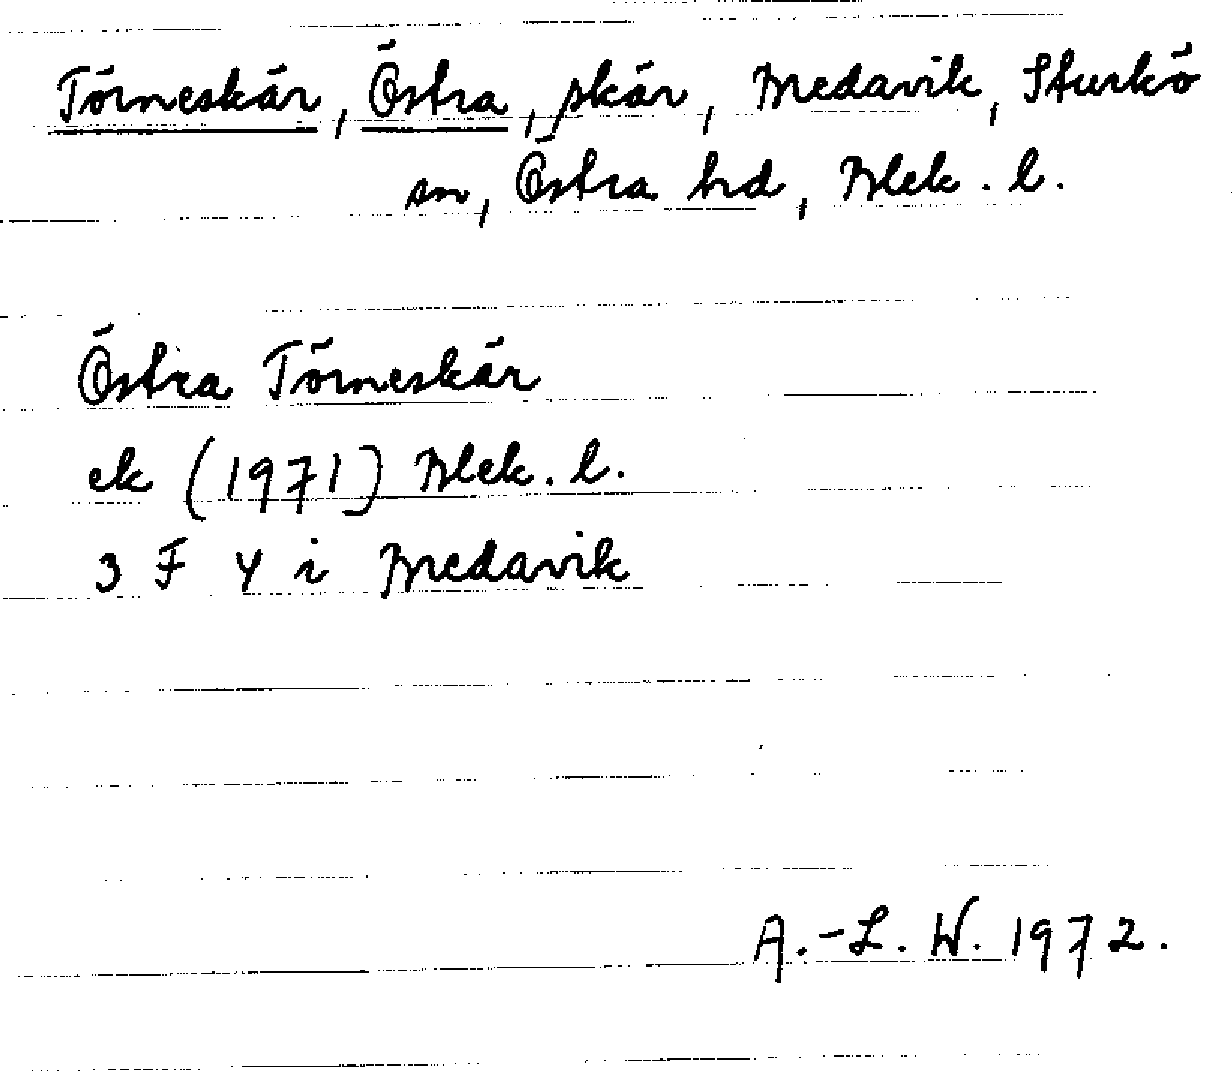 Törneskär, Östra, skär, Medavik, Sturkö
sn, Östra hd, Blek. l.
Östra Törneskär
ek (1971) Blek. l.
3 F 4 i Medavik
A.-L. W. 1972.